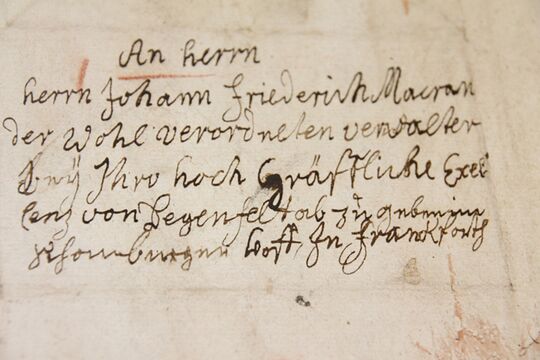 An herrn
herrn Johann Friederich Macran
der Wohl verordneten verwalter
bey Ihro hoch Gräffliche Exel
lenz von Degenfelt ab zu geben im
Schomburger Hoff, In Franckforth